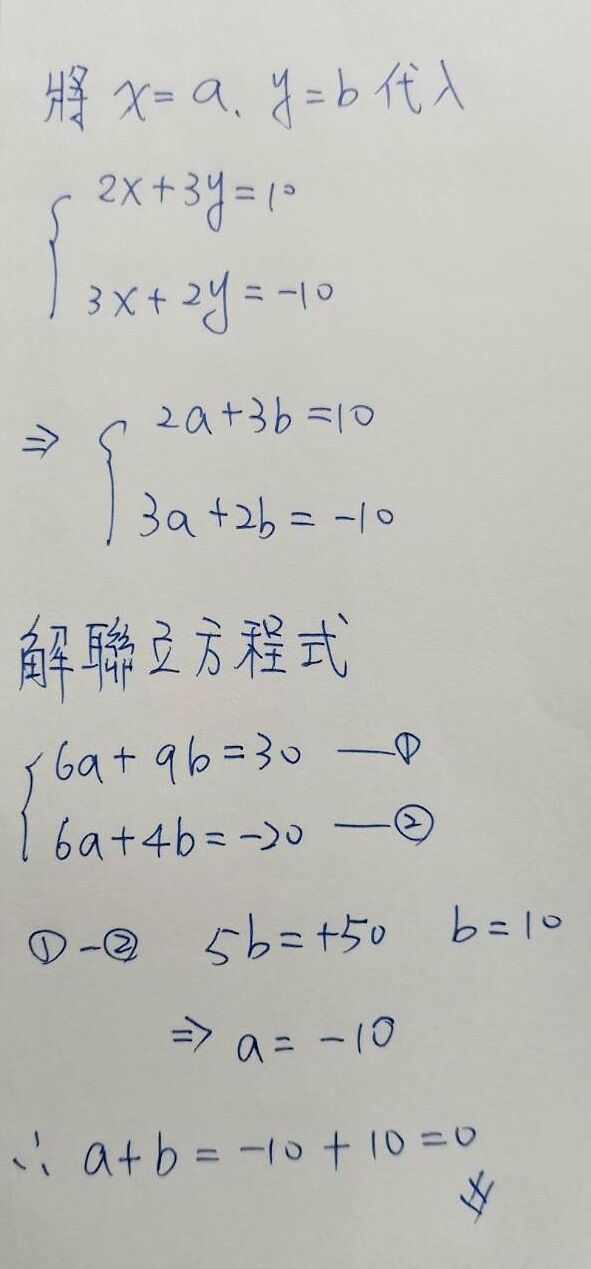 將 x=a、y=b 代入
2x+3y=10
3x+2y=-10
⇒ 2a+3b=10
3a+2b=-10
解聯立方程式
6a+9b=30 —①
6a+4b=-20 —②
①-② 5b=+50 b=10
⇒ a=-10
∴ a+b=-10+10=0